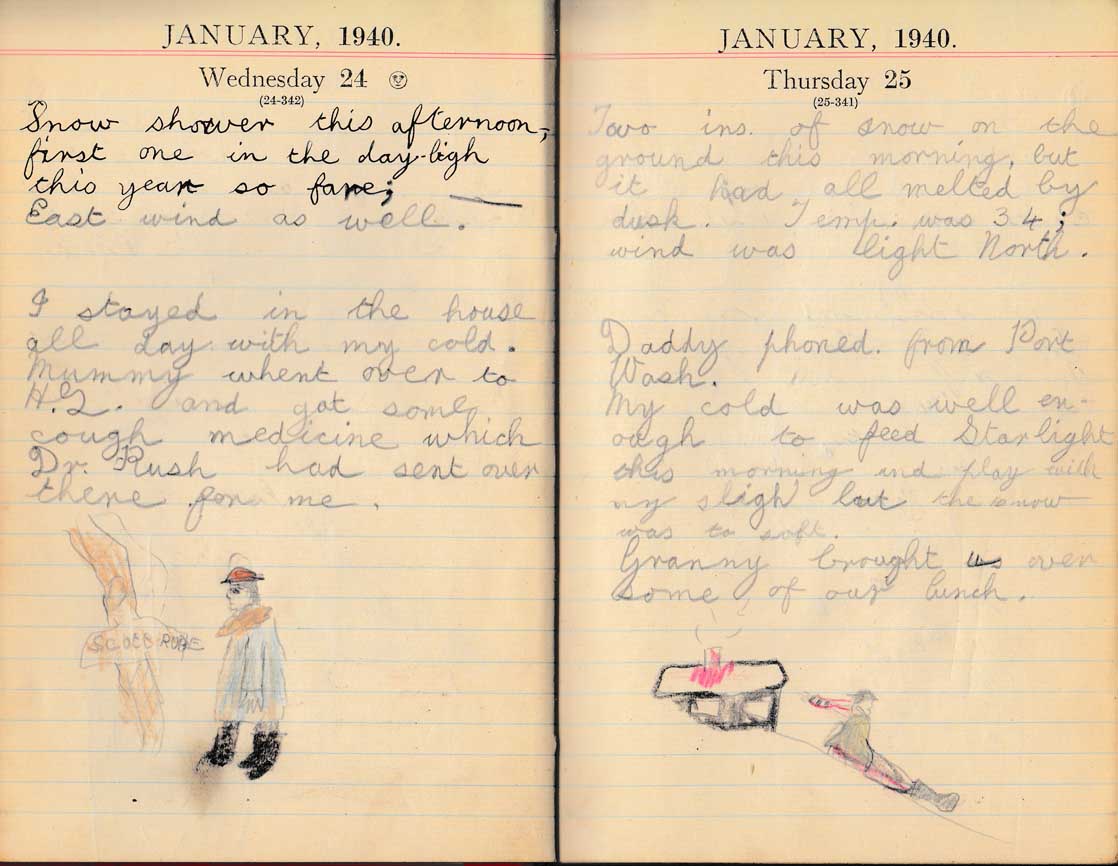 JANUARY, 1940.
Wednesday 24
(24-342)
Snow shower this afternoon,
first one in the day-ligh
this year so fare;
East wind as well.
I stayed in the house
all day with my cold.
Mummy whent over to
H.Q. and got some
cough medicine which
Dr. Rush had sent over
there for me.
SCOTT
JANUARY, 1940.
Thursday 25
(25-341)
Two ins. of snow on the
ground this morning, but
it had all melted by
dusk. Temp. was 34;
wind was light North.
Daddy phoned from Port
Wash.
My cold was well en-
ough to feed Starlight
this morning and play with
my sligh but the snow
was to soft.
Granny brought us over
some of our lunch.